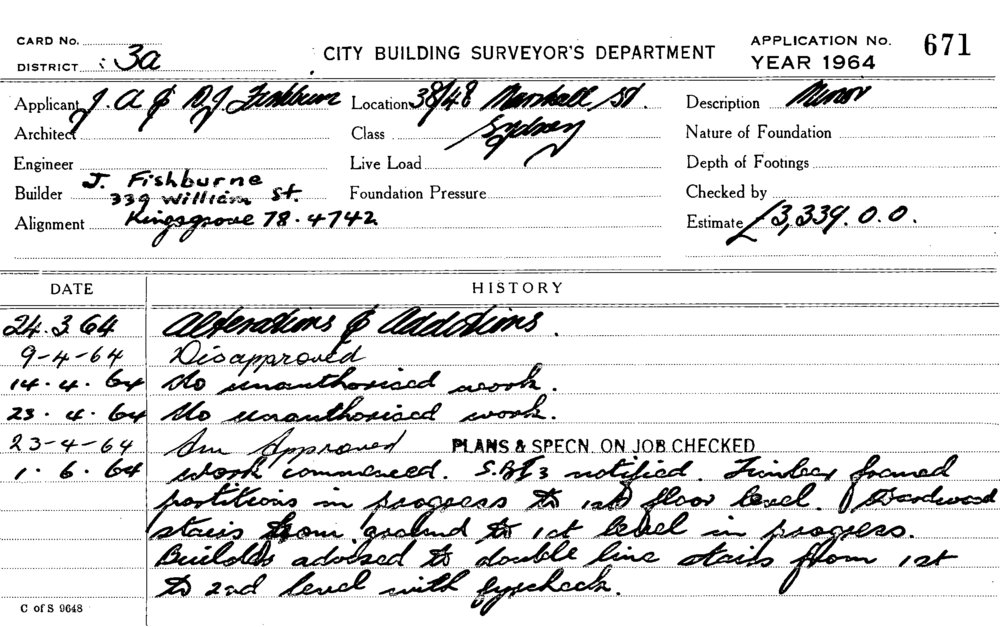 CARD No.
DISTRICT 3a
CITY BUILDING SURVEYOR'S DEPARTMENT
APPLICATION No. 671
YEAR 1964
Applicant J. A & D J Fishburn
Location 38/48 Marshall St.
Sydney
Description Minor
Architect
Class
Nature of Foundation
Engineer
Live Load
Depth of Footings
Builder J. Fishburne
339 William St.
Foundation Pressure
Checked by
Alignment Kingsgrove 78.4742
Estimate £3,339.0.0.
DATE HISTORY
24.3.64 Alterations & Additions.
9-4-64 Disapproved
14.4.64 No unauthorised work.
23.4.64 No unauthorised work.
23-4-64 Approved PLANS & SPECN. ON JOB CHECKED
1.6.64 work commenced. notified. Timber framed
partitions in progress to 1st floor level. Hardwood
stairs from ground to 1st level in progress.
Builder advised to double line stairs from 1st
to 2nd level with fyrcheck.
C of S 9648